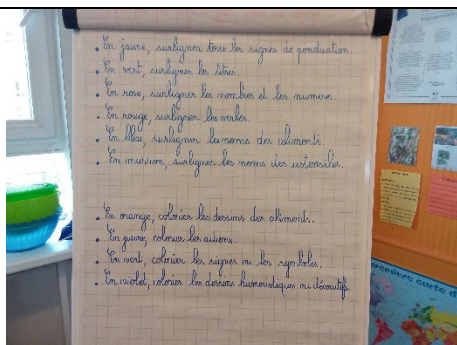 . En jaune, surligner tous les signes de ponctuation.
. En vert, surligner les titres.
. En rose, surligner les nombres et les numéros.
. En rouge, surligner les verbes.
. En bleu, surligner les noms des aliments.
. En marron, surligner les noms des ustensiles.
. En orange, colorier les dessins des aliments.
. En jaune, colorier les actions.
. En vert, colorier les signes ou les symboles.
. En violet, colorier les dessins humoristiques ou décoratifs